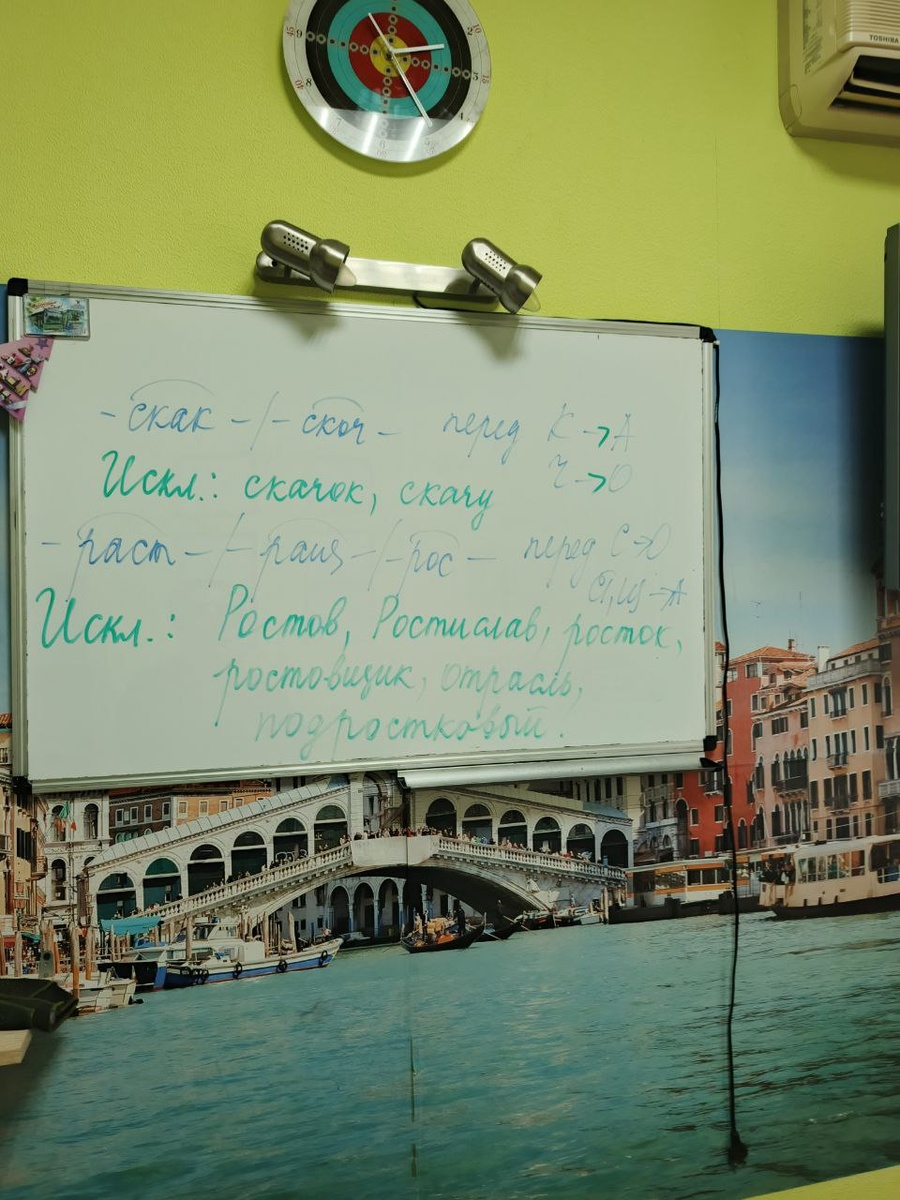 TOSHIBA
-скак-/-скоч- перед К→А
Ч→О
Искл.: скачок, скачу
-раст-/-ращ-/-рос- перед С→О
Ст,Щ→А
Искл.: Ростов, Ростислав, росток,
ростовщик, отрасль,
подростковый.